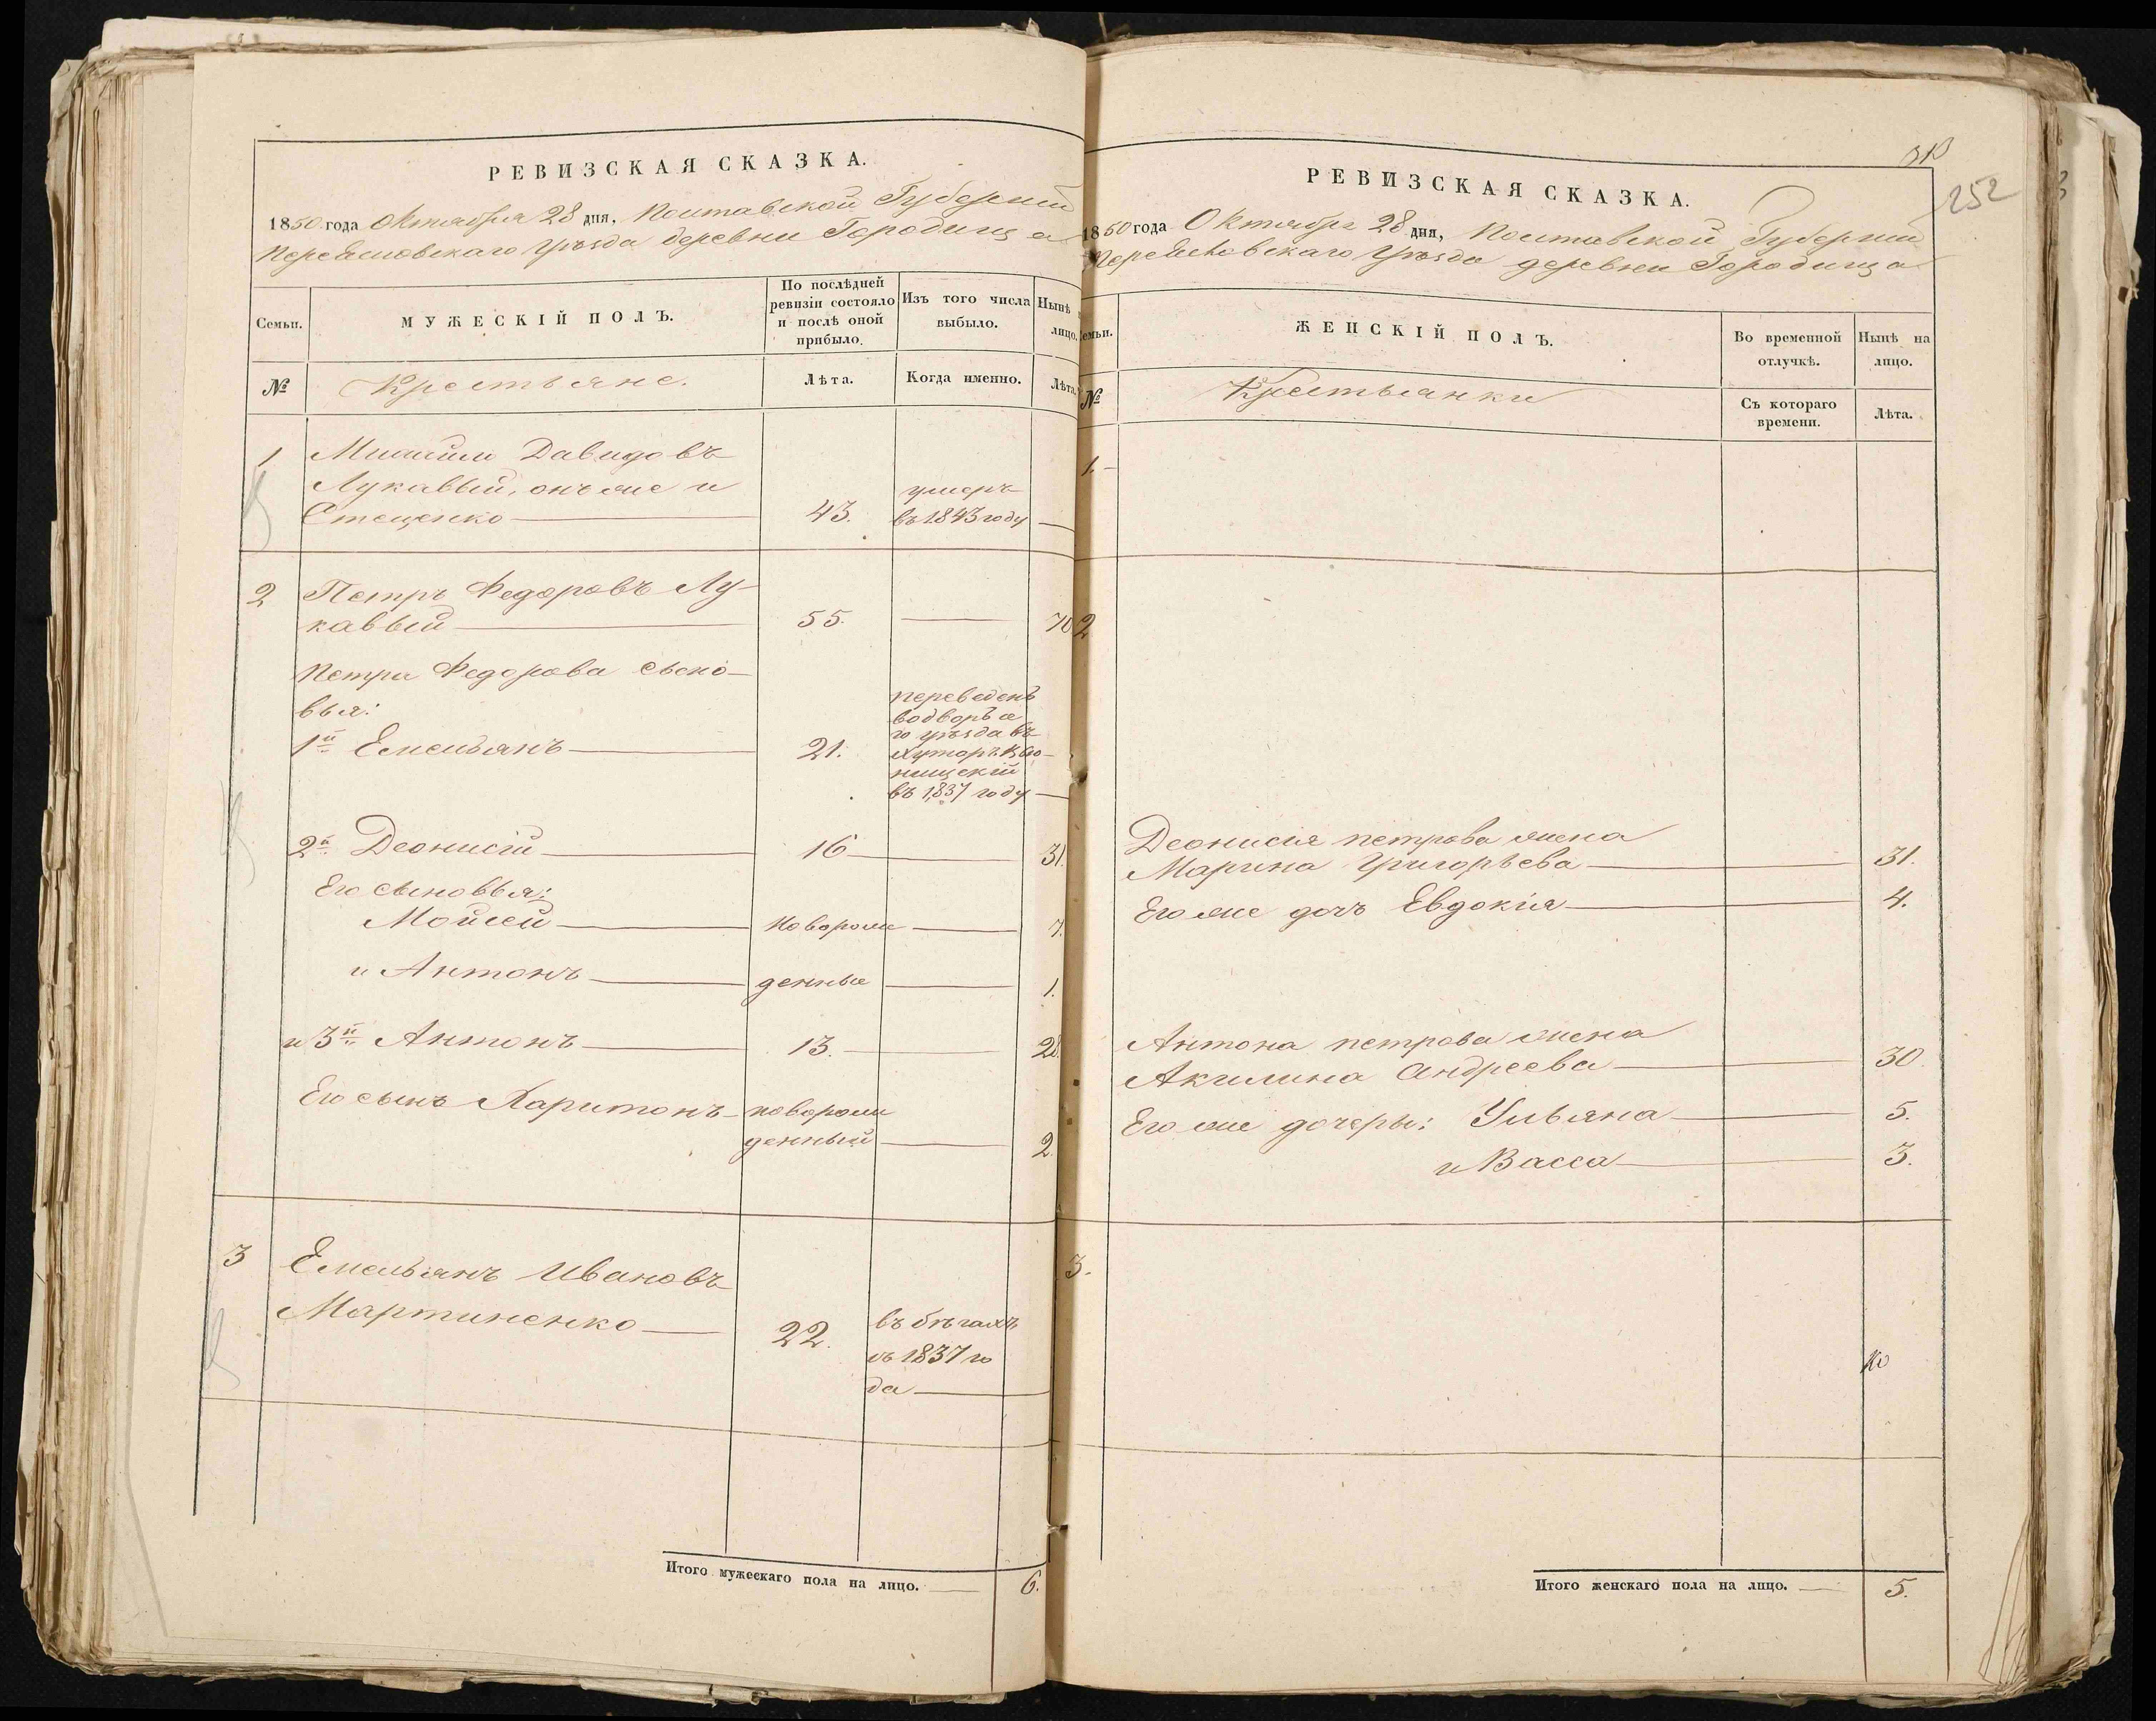 РЕВИЗСКАЯ СКАЗКА.
1850 года Октября 28 дня, Полтавской Губернии
Переяславскаго Уѣзда деревни Городища
Семьи.
МУЖЕСКІЙ ПОЛЪ.
По послѣдней ревизіи состояло и послѣ оной прибыло.
Изъ того числа выбыло.
Нынѣ
лицо.
№
Крестьяне.
Лѣта.
Когда именно.
Лѣта.
1
Давидовъ
Лукавый, онъ же и
Стеценко
43.
умеръ
въ 1843 году
2
Петръ Федоровъ Лу-
кавый
55.
70
Петра Федорова сыно-
вья:
1й Емельянъ
21.
переведенъ
го уѣзда въ
въ 1837 году
2й Деонисій
16
31.
Его сыновья:
Мойсей
новорож
7.
и Антонъ
денные
1.
и 3й Антонъ
13.
28.
Его сынъ Харитонъ
новорож
денный
2.
3
Емельянъ Ивановъ
Мартиненко
22.
въ бѣгахъ
съ 1837 го
да
Итого мужескаго пола на лицо.
6.
252
РЕВИЗСКАЯ СКАЗКА.
1850 года Октября 28 дня, Полтавской Губернии
Переяславскаго Уѣзда деревни Городища
Семьи.
ЖЕНСКІЙ ПОЛЪ.
Во временной отлучкѣ.
Нынѣ на лицо.
№
Крестьянки
Съ котораго времени.
Лѣта.
1.
2
Деонисія петрова жена
Марина Григорьева
31.
Его же дочъ Евдокія
4.
Антона петрова жена
Акилина Андреева
30.
Его же дочеры: Ульяна
5.
и Васса
3.
3.
Итого женскаго пола на лицо.
5.